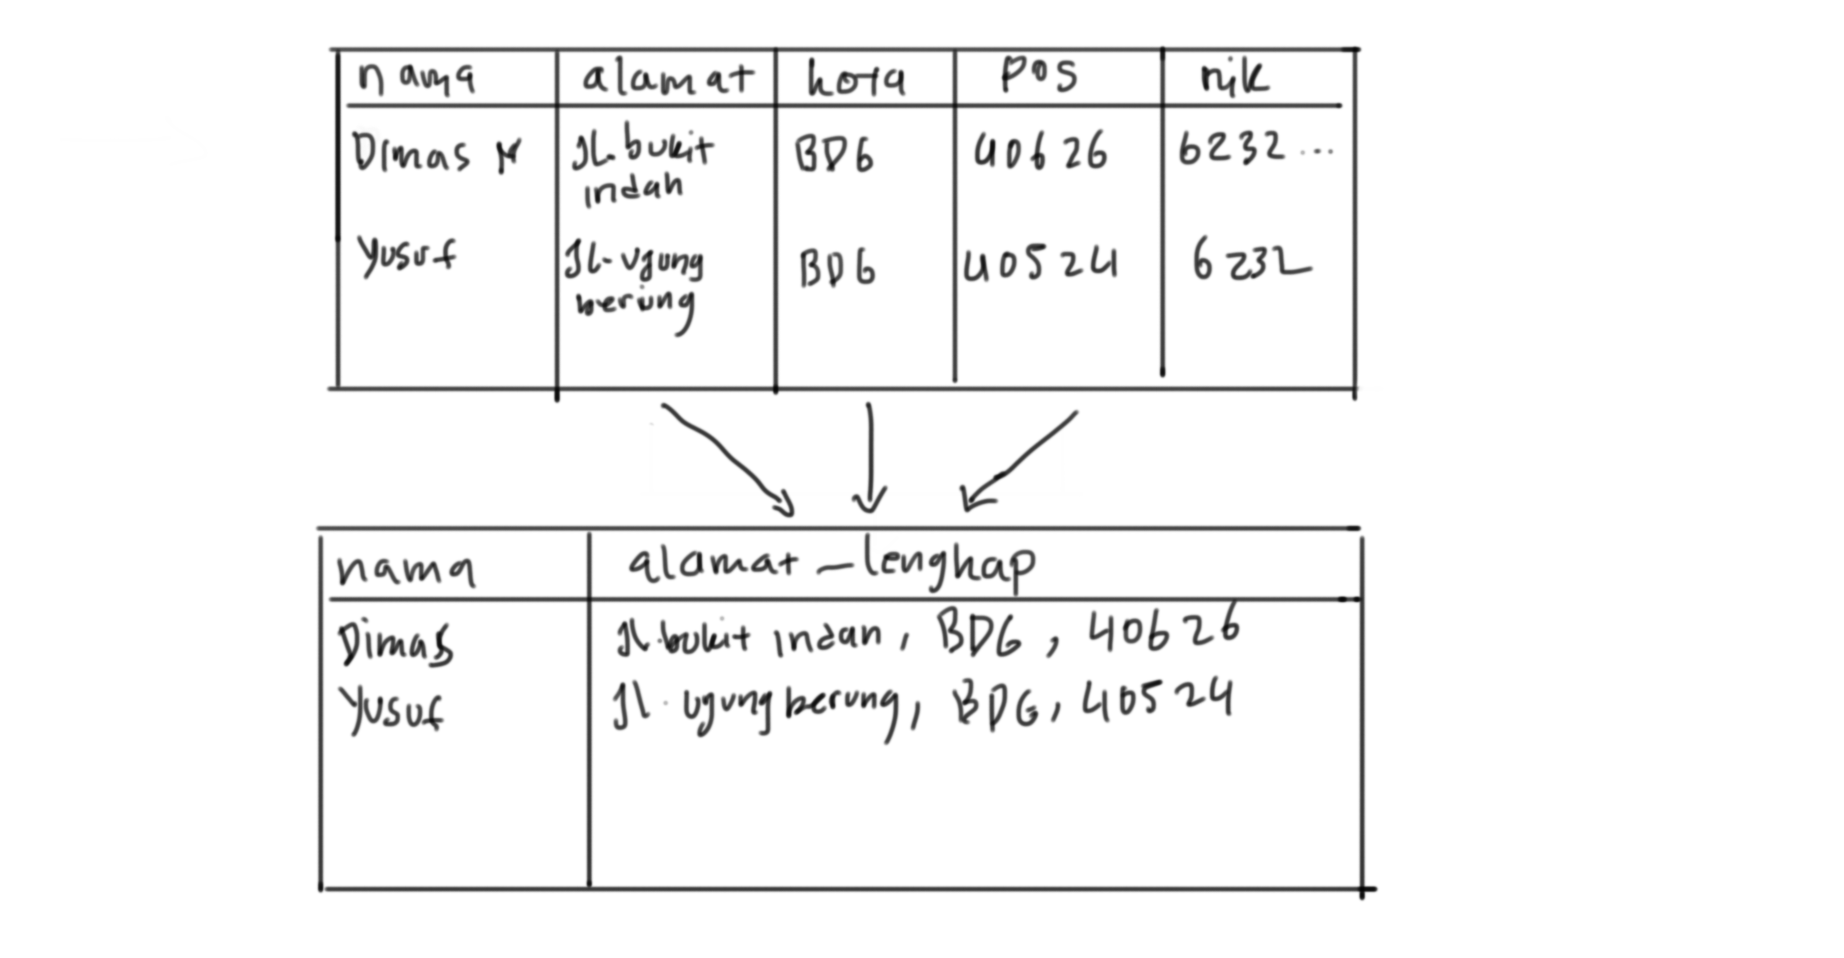 nama alamat kota Pos nik
Dimas M Jl. bukit BDG 40626 6232 ...
indah
Yusuf Jl. Ujung BDG 40524 6232
berung
nama alamat_lengkap
Dimas Jl. bukit indah, BDG, 40626
Yusuf Jl. ujung berung, BDG, 40524